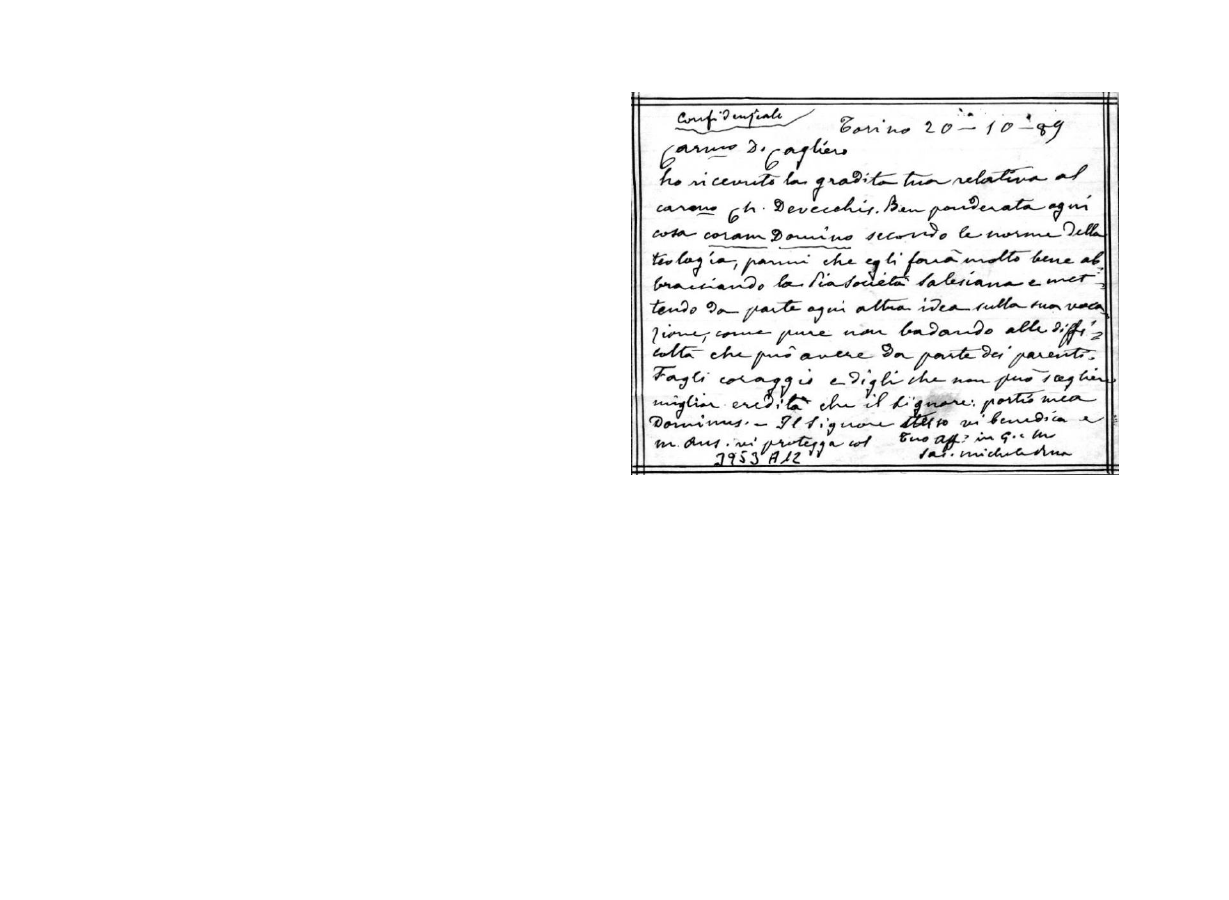 Confidenziale
Torino 20-10-89
Car.mo D. Cagliero
ho ricevuto la gradita tua relativa al
carmo Ch. Devecchis. Ben ponderata ogni
cosa coram Domino secondo le norme della
teologia, parmi che egli farà molto bene ab
bracciando la Pia Società Salesiana e met=
tendo da parte ogni altra idea sulla sua voca
zione, come pure non badando alle diffi=
coltà che può avere da parte dei parenti.
Fagli coraggio e digli che non può scegliere
miglior eredità che il Signore: portio mea
Dominus. - Il Signore stesso vi benedica e
M. Aus. vi protegga col Tuo aff. in G. e M
3953 A12 Sac. Michele Rua